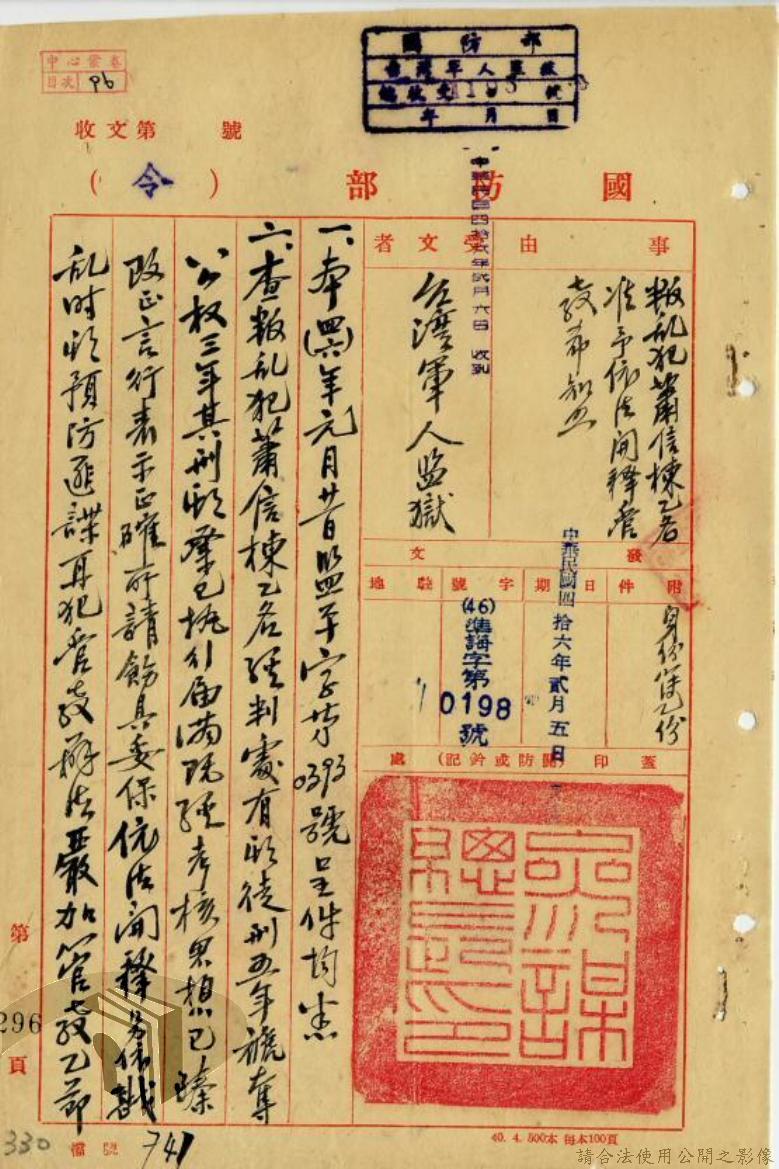 中心案卷
目次 96
國防部
台灣軍人監獄
總收文 1105 號
年 月 日
收文第 號
國防部
(令)
中華民國四拾六年貳月六日 收到
事由
叛乱犯蕭信棟乙名
准予依法開釋管
教希知照
受文者
台灣軍人監獄
附件
身份簿乙份
發文
日期
中華民國四拾六年貳月五日
字號
(46)
準誨字第
0198
號
駐地
蓋印(關防或鈐記)處
參謀總長之印
一、本(四六)年元月廿日監平字第0393號呈件均悉
二、查叛乱犯蕭信棟乙名經判處有期徒刑五年褫奪
公权三年其刑期業已執行屆滿既經考核思想已臻
改正言行表示正確所請飭具妥保依法開釋另依戡
乱时期預防匪諜再犯管教辦法嚴加管教乙節
第
296
頁
330
檔號
741
40. 4. 500本 每本100頁
請合法使用公開之影像